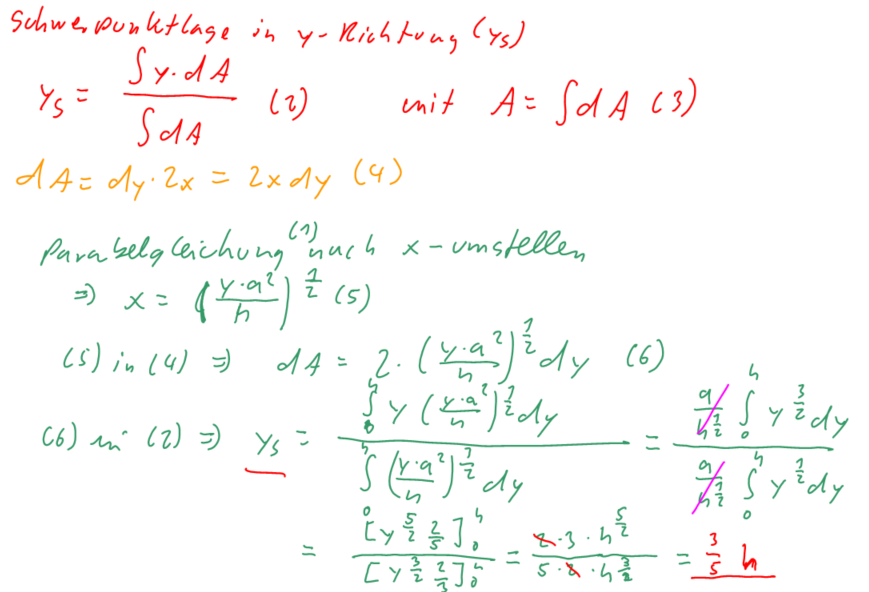 Schwerpunktlage in y-Richtung (ys)
ys = ∫y·dA / ∫dA (2) mit A = ∫dA (3)
dA = dy·2x = 2x dy (4)
Parabelgleichung (1) nach x-umstellen
⇒ x = (y·a²/h)^(1/2) (5)
(5) in (4) ⇒ dA = 2·(y·a²/h)^(1/2) dy (6)
(6) in (2) ⇒ ys = ∫₀^h y (y·a²/h)^(1/2) dy / ∫₀^h (y·a²/h)^(1/2) dy = a/h^(1/2) ∫₀^h y^(3/2) dy / a/h^(1/2) ∫₀^h y^(1/2) dy
= [y^(5/2) 2/5]₀^h / [y^(3/2) 2/3]₀^h = 2·3·h^(5/2) / 5·2·h^(3/2) = 3/5 h